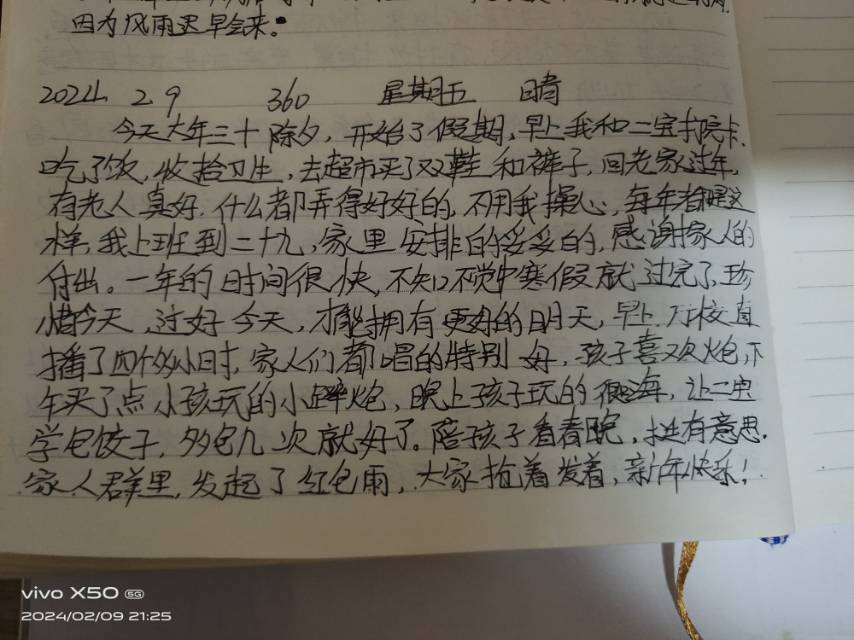 因为风雨迟早会来。
2024 2 9 360 星期五 晴
今天大年三十除夕,开始了假期,早上我和二宝打院卡,
吃了饭,收拾卫生,去超市买了双鞋和裤子,回老家过年,
有老人真好,什么都弄得好好的,不用我操心,每年都是这
样,我上班到二十九,家里安排的妥妥的,感谢家人的
付出。一年的时间很快,不知不觉中寒假就过完了,珍
惜今天,过好今天,才能拥有更好的明天,早上万校直
播了四个多小时,家人们都唱的特别好,孩子喜欢炮,下
午买了点小孩玩的小鞭炮,晚上孩子玩的很嗨,让二宝
学包饺子,多包几次就好了。陪孩子看春晚,挺有意思.
家人群里,发起了红包雨,大家抢着发着,新年快乐!
vivo X50 5G
2024/02/09 21:25